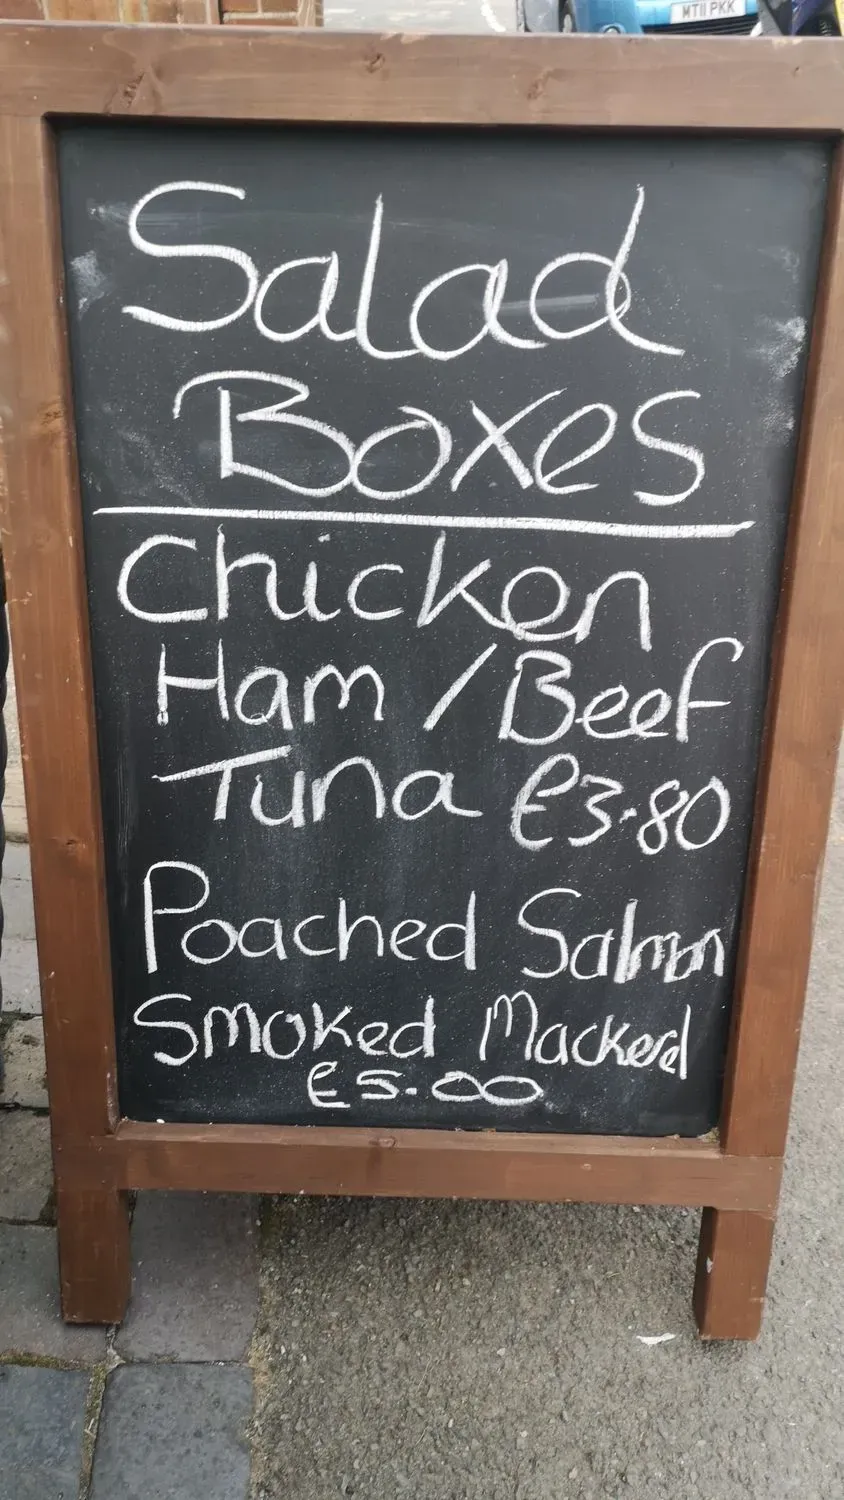 MT11 PKK
Salad
Boxes
Chicken
Ham / Beef
Tuna £3.80
Poached Salmon
Smoked Mackerel
£5.00